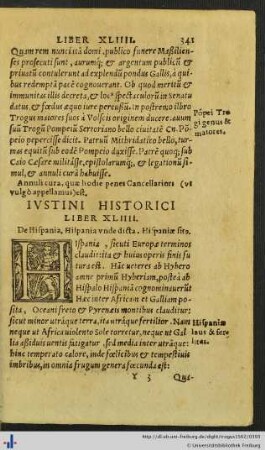 LIBER XLIIII. 341
Quam rem nuncii tā domi, publico funere Massilien-
ses prosecuti sunt, aurumq; & argentum publicū &
priuatū contulerunt ad explendū pondus Gallis, à qui-
bus redemptā pacē cognouerant. Ob quod meritū &
immunitas illis decreta, & locus spectaculorū in Senatu
datus, & fœdus æquo iure percussū. In postremo libro
Trogus maiores suos à Volscis originem ducere. auum
suū Trogū Pompeiū Sertoriano bello ciuitatē Cn. Pō-
peio percepisse dicit. Patruū Mithridatico bello, tur-
mas equitū sub eodē Pompeio duxisse. Patrē quoq; sub
Caio Cæsare militasse, epistolarumq;, & legationū si-
mul, & annuli curā habuisse.
Pōpei Tro
gi genus &
maiores.
Annuli cura, quæ hodie penes Cancellarium (ut
vulgò appellamus) est.
IVSTINI HISTORICI
LIBER XLIIII.
De Hispania, Hispania vnde dicta. Hispaniæ situs.
HIspania, sicuti Europæ terminos
claudit ita & huius operis finis fu
tura est. Hāc ueteres ab Hybero
amne primū Hyberiam, posteā ab
Hispalo Hispaniā cognominauerūt
Hæc inter Africam et Galliam po-
sita, Oceani freto & Pyrenæis montibus clauditur:
sicut minor utráque terra, ita utráque fertilior. Nam
neque ut Africa uiolento Sole torretur, neque ut Gal
lia assiduis uentis fatigatur, sed media inter utráque:
hinc temperato calore, inde fœlicibus & tempestiuis
imbribus, in omnia frugum genera fœcunda est:
Hispaniæ
laus & fer
tilitas.
Y 3 Qua-
http://dl.ub.uni-freiburg.de/diglit/trogus1562/0393
© Universitätsbibliothek Freiburg